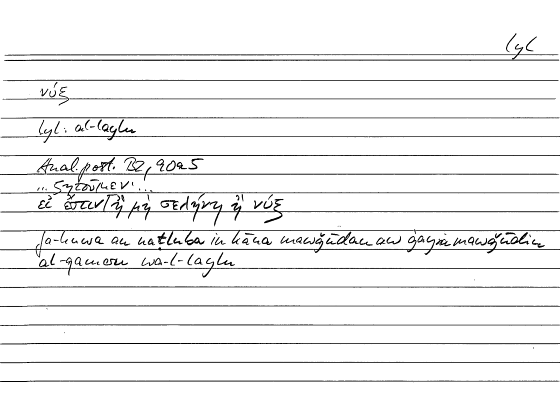 lyl
νύξ
lyl: al-laylu
Anal. post. B2, 90a5
... ζητοῦμεν· ...
εἰ ἔστιν ἢ μὴ σελήνη ἢ νύξ
fa-huwa an naṭluba in kāna mawǧūdan aw ġayra mawǧūdin
al-qamaru wa-l-laylu